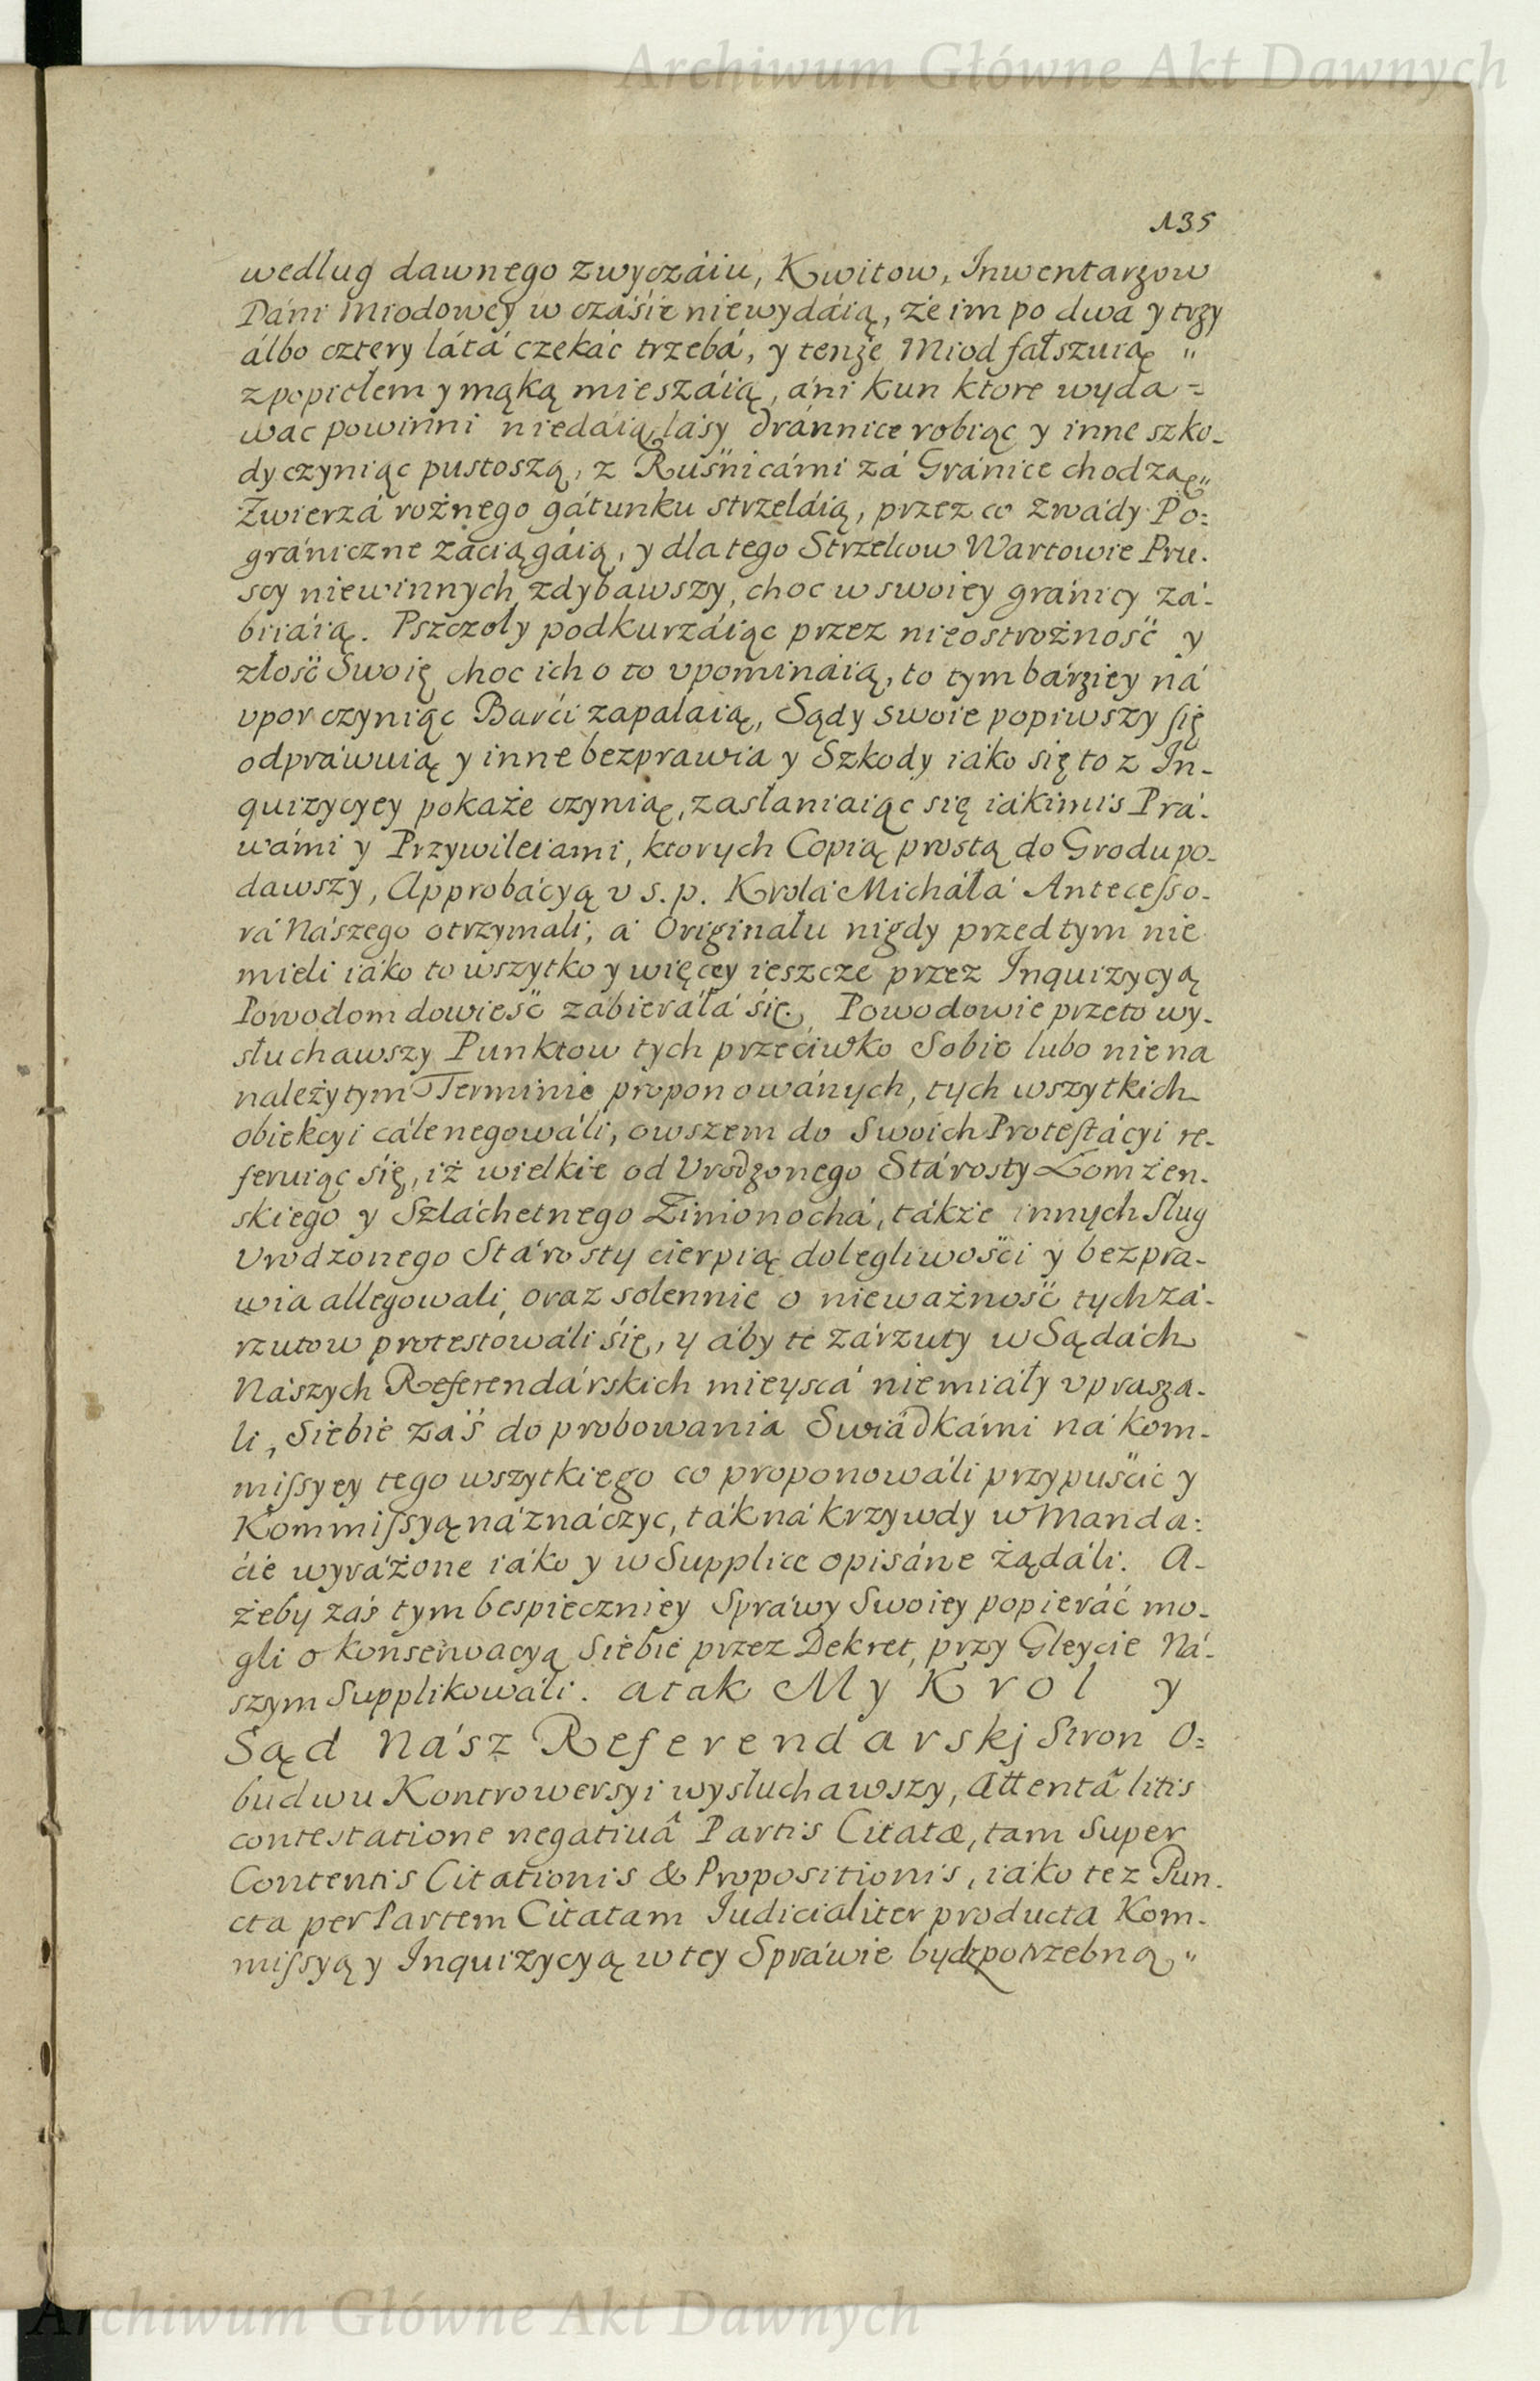 Archiwum Główne Akt Dawnych
135
według dawnego zwyczáiu, Kwitow, Inwentarzow
Dáni Miodowey w czáśie niewydáią, że im po dwa y trzy
álbo cztery látá czekáć trzebá, y tenże Miod fałszuią "
z popiełem y mąką mieszáią, áni kun ktore wyda=
wac powinni niedáią, lásy dránnice robiąc y inne szko-
dy czyniąc pustoszą, z Ruśnicámi zá Gránice chodzą,"
Zwierzá rożnego gátunku strzeláią, przez co zwády Po=
grániczne záciągáią, y dla tego Strzelcow Wartowie Pru.
scy niewinnych zdybawszy, choc w swoiey gránicy zá-
biiáią. Pszczoły podkurzáiąc przez nieostrożność y
złość Swoię choc ich o to vpomináią, to tym bárziey ná
vpor czyniąc Barći zapaláią, Sądy swoie popiwszy się
odpráwuią y inne bezprawia y Szkody iáko się to z In-
quizycyey pokaże czynią, zasłaniaiąc się iákimis Prá-
wámi y Przywileiami, ktorych Copią prostą do Grodu po-
dawszy, Approbácyą v s. p. Krolá Micháłá Antecesso-
rá Nászego otrzymali, á Originału nigdy przed tym nie
mieli iáko to wszytko y więcey ieszcze przez Inquizycyą
Powodom dowieść zábieráłá się. Powodowie przeto wy-
słuchawszy Punktow tych przećiwko Sobie lubo nie na
należytym Terminie proponowánych, tych wszytkich
obiekcyi cále negowáli, owszem do Swoich Protestácyi re-
feruiąc się, iż wielkie od Vrodzonego Stárosty Łomżen-
skiego y Szláchetnego Zimonochá, tákże innych Sług
Vrodzonego Stárosty cierpią dolegliwości y bezpra-
wia allegowali, oraz solennie o nieważność tych zá-
rzutow protestowáli się, y áby te zárzuty w Sądách
Nászych Referendárskich mieyscá niemiáły vprasza-
li, Siebie záś do probowania Swiádkámi ná kom-
missyey tego wszytkiego co proponowáli przypuścić y
Kommissyą náznáczyc, ták ná krzywdy w Manda:
ćie wyráżone iáko y w Supplice opisáne żądáli. A-
żeby záś tym bespieczniey Spráwy Swoiey popieráć mo-
gli o konserwacyą Siebie przez Dekret, przy Gleycie Ná-
szym Supplikowáli. a tak My Krol y
Sąd Nász Referendarskj Stron O=
budwu Kontrowersyi wysłuchawszy, Attentâ litis
contestatione negatiuâ Partis Citatæ, tam Super
Contentis Citationis & Propositionis, iáko tez Pun-
cta per Partem Citatam Iudicialiter producta Kom-
missyą y Inquizycyą w tey Spráwie bydz potrzebną,"
Archiwum Główne Akt Dawnych